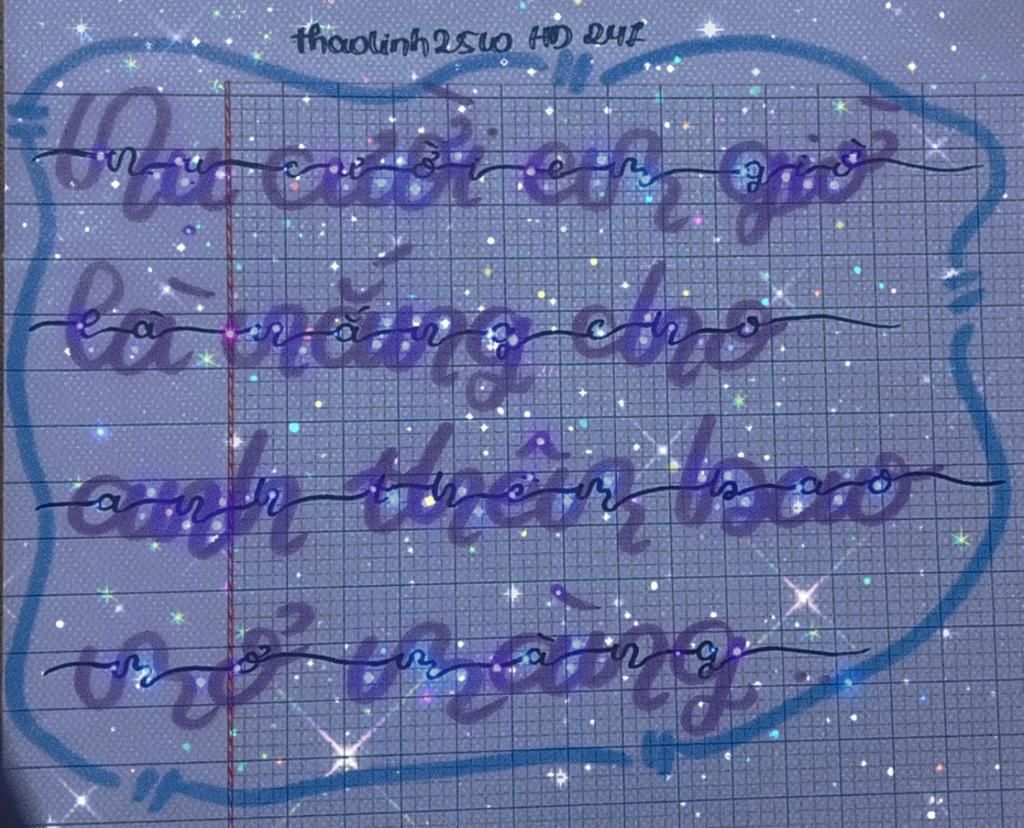 thaolinh2510 HD 241
Nụ cười em giờ
là nắng cho
anh thêm bao
mơ màng...